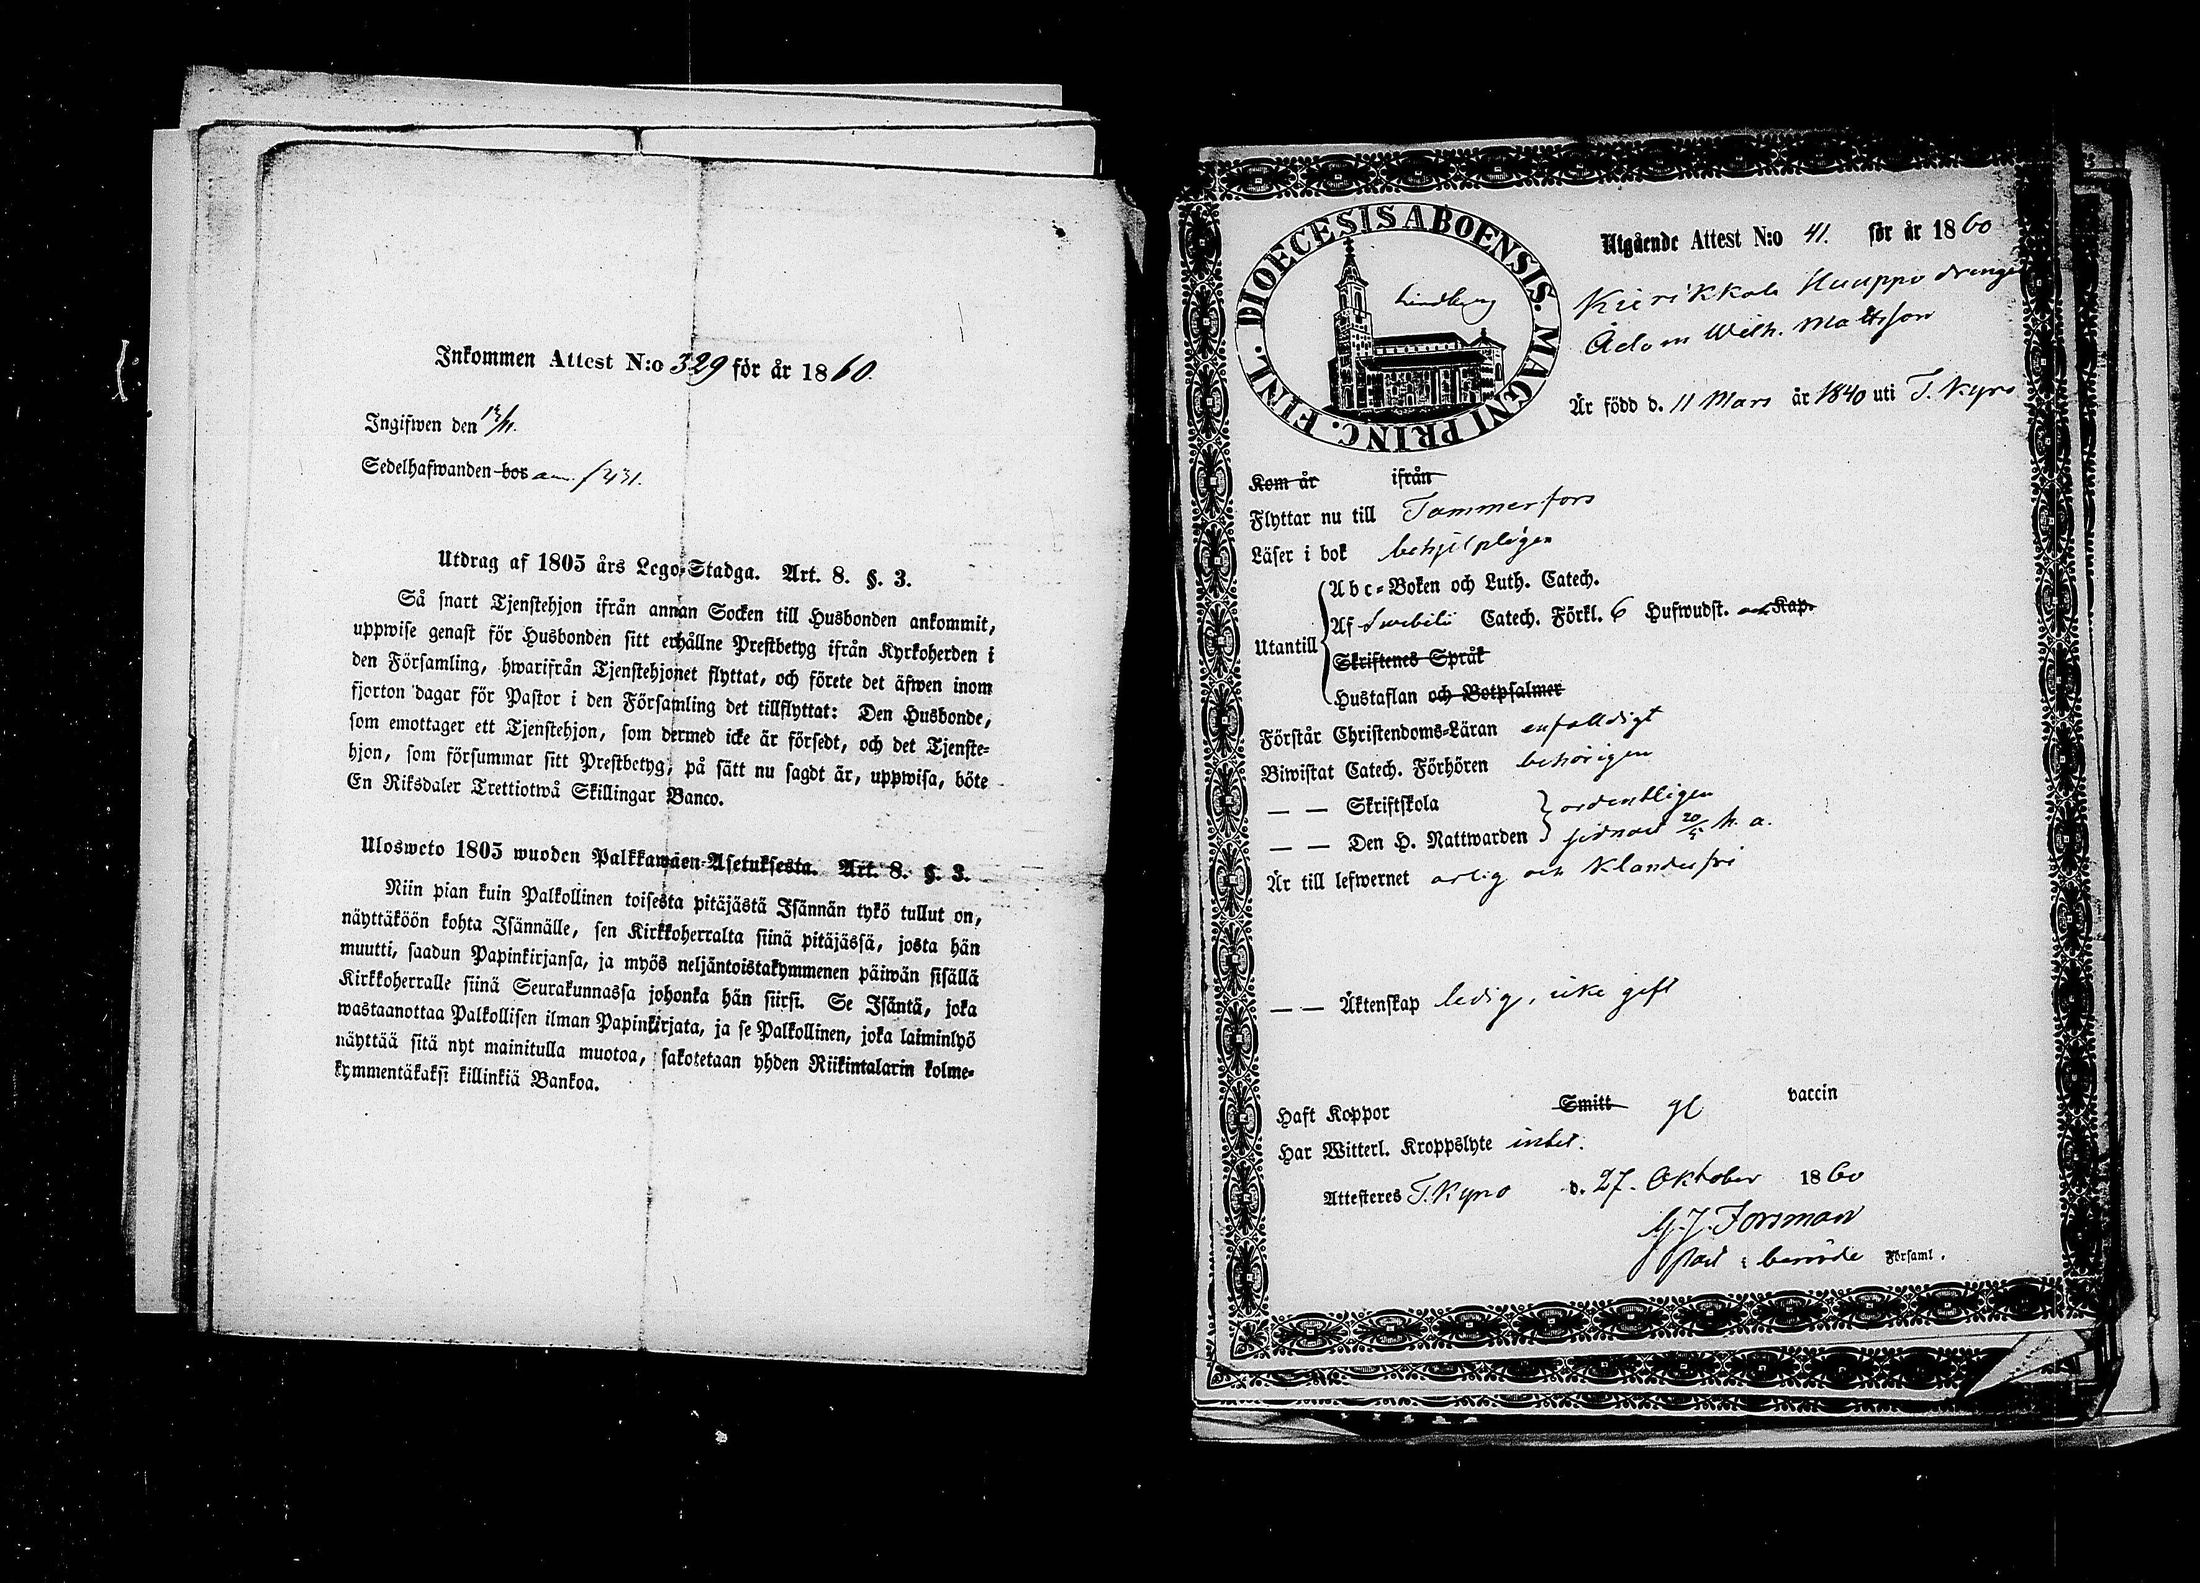 Inkommen Attest N:o 329 för år 1860.
Ingifwen den
Sedelhafwanden bos
Utdrag af 1805 års Lego-Stadga. Art. 8. §. 3.
Så snart Tjenstehjon ifrån annan Socken till Husbonden ankommit,
uppwise genast för Husbonden sitt erhållne Prestbetyg ifrån Kyrkoherden i
den Församling, hwarifrån Tjenstehjonet flyttat, och förete det äfwen inom
fjorton dagar för Pastor i den Församling det tillflyttat: Den Husbonde,
som emottager ett Tjenstehjon, som dermed icke är försedt, och det Tjenste-
hjon, som försummar sitt Prestbetyg, på sätt nu sagdt är, uppwisa, böte
En Riksdaler Trettiotwå Skillingar Banco.
Ulosweto 1805 wuoden Palkkawäen-Asetuksesta. Art. 8. §. 3.
Niin pian kuin Palkollinen toisesta pitäjästä Isännän tykö tullut on,
näyttäköön kohta Isännälle, sen Kirkkoherralta siinä pitäjässä, josta hän
muutti, saadun Papinkirjansa, ja myös neljäntoistakymmenen päiwän sisällä
Kirkkoherralle siinä Seurakunnassa johonka hän siirsi. Se Isäntä, joka
wastaanottaa Palkollisen ilman Papinkirjata, ja se Palkollinen, joka laiminlyö
näyttää sitä nyt mainitulla muotoa, sakotetaan yhden Riikintalarin kolme-
kymmentäkaksi killinkiä Bankoa.
DIOECESIS ABOENSIS. MAGNI PRINC. FINL.
Lindberg
Utgående Attest N:o 41. för år 1860
Kierikkala Huuppo drengen
Adam Wilh. Mattsson
Är född d. 11 Mars år 1840 uti T. Kyro
Kom år ifrån
Flyttar nu till Tammerfors
Läser i bok behjelpligen
Utantill
Abc-Boken och Luth. Catech.
Af Swebilii Catech. Förkl. 6 Hufwudst. och Kap.
Skriftenes Språk
Hustaflan och Botpsalmer
Förstår Christendoms-Läran enfalldigt
Biwistat Catech. Förhören behörigen
— — Skriftskola ordentligen
— — Den H. Nattwarden sednast 20/5 h. a.
Är till lefwernet ärlig och Klanderfri
— — Äktenskap ledig, icke gift
Haft Koppor Smitt gl vaccin
Har Witterl. Kroppslyte intet.
Attesteres T. Kyro d. 27. Oktober 1860
G. J. Forsman
Past i berörde Församl.